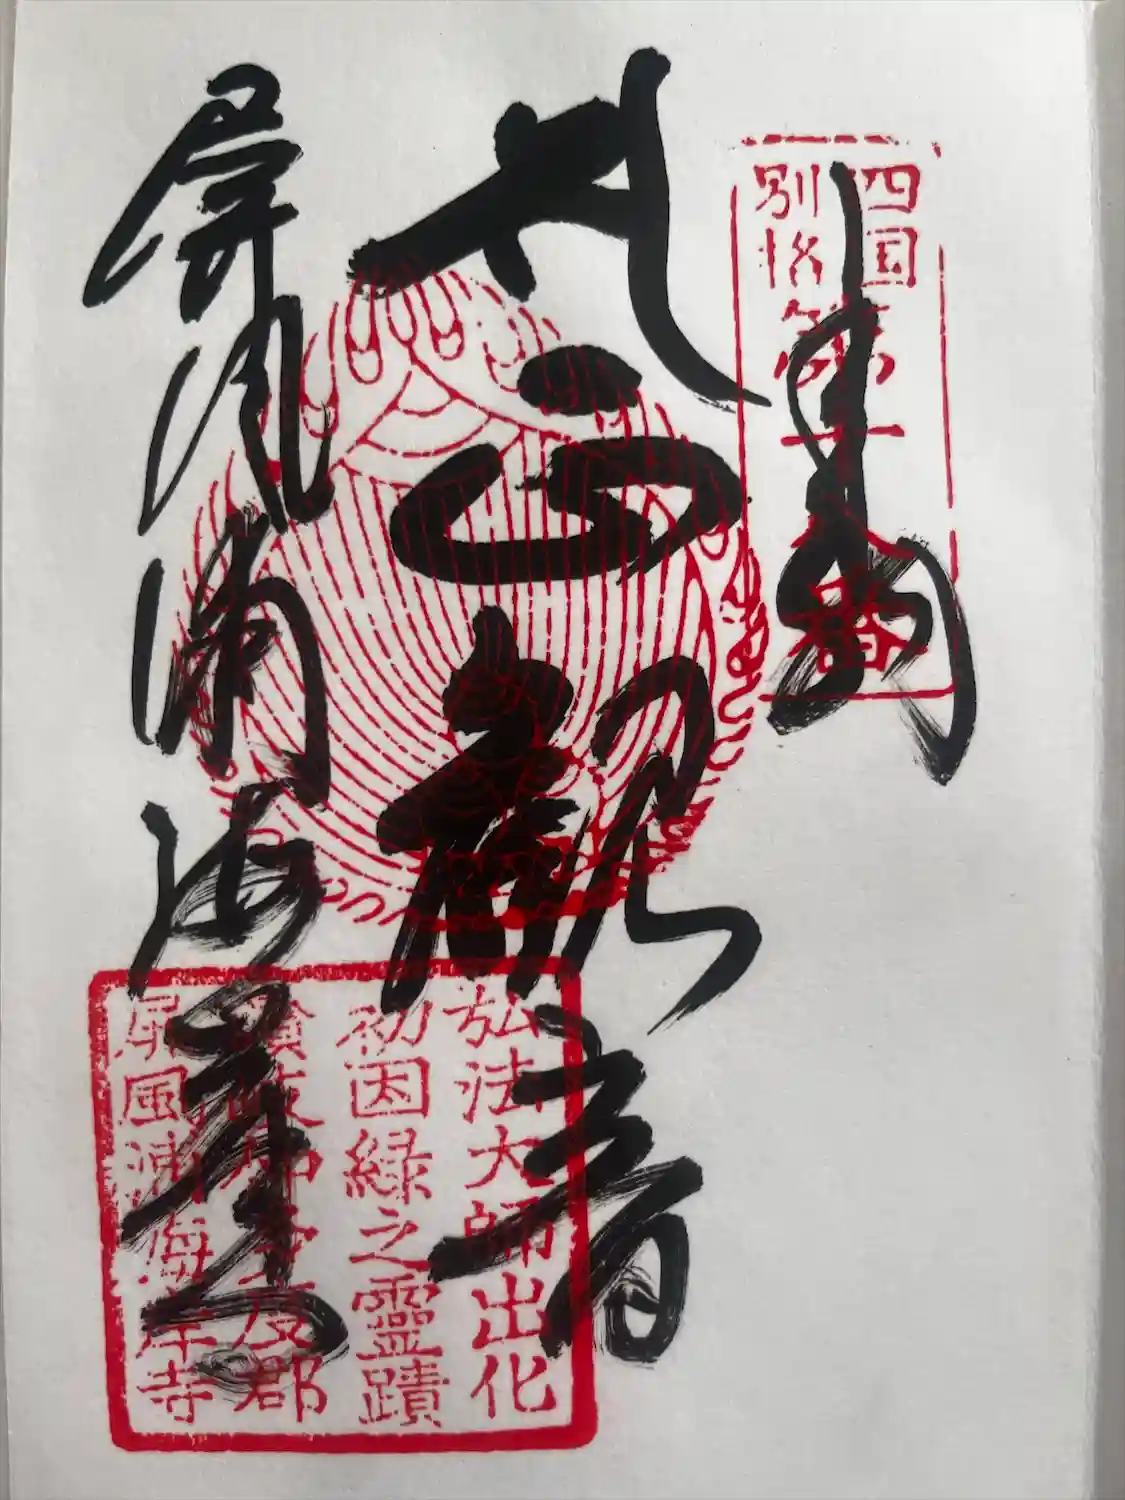 四国
別格
第十八番
奉納
正観音
屏風浦海岸寺
弘法大師出化
初因縁之靈蹟
讃岐仲多度郡
屏風浦海岸寺